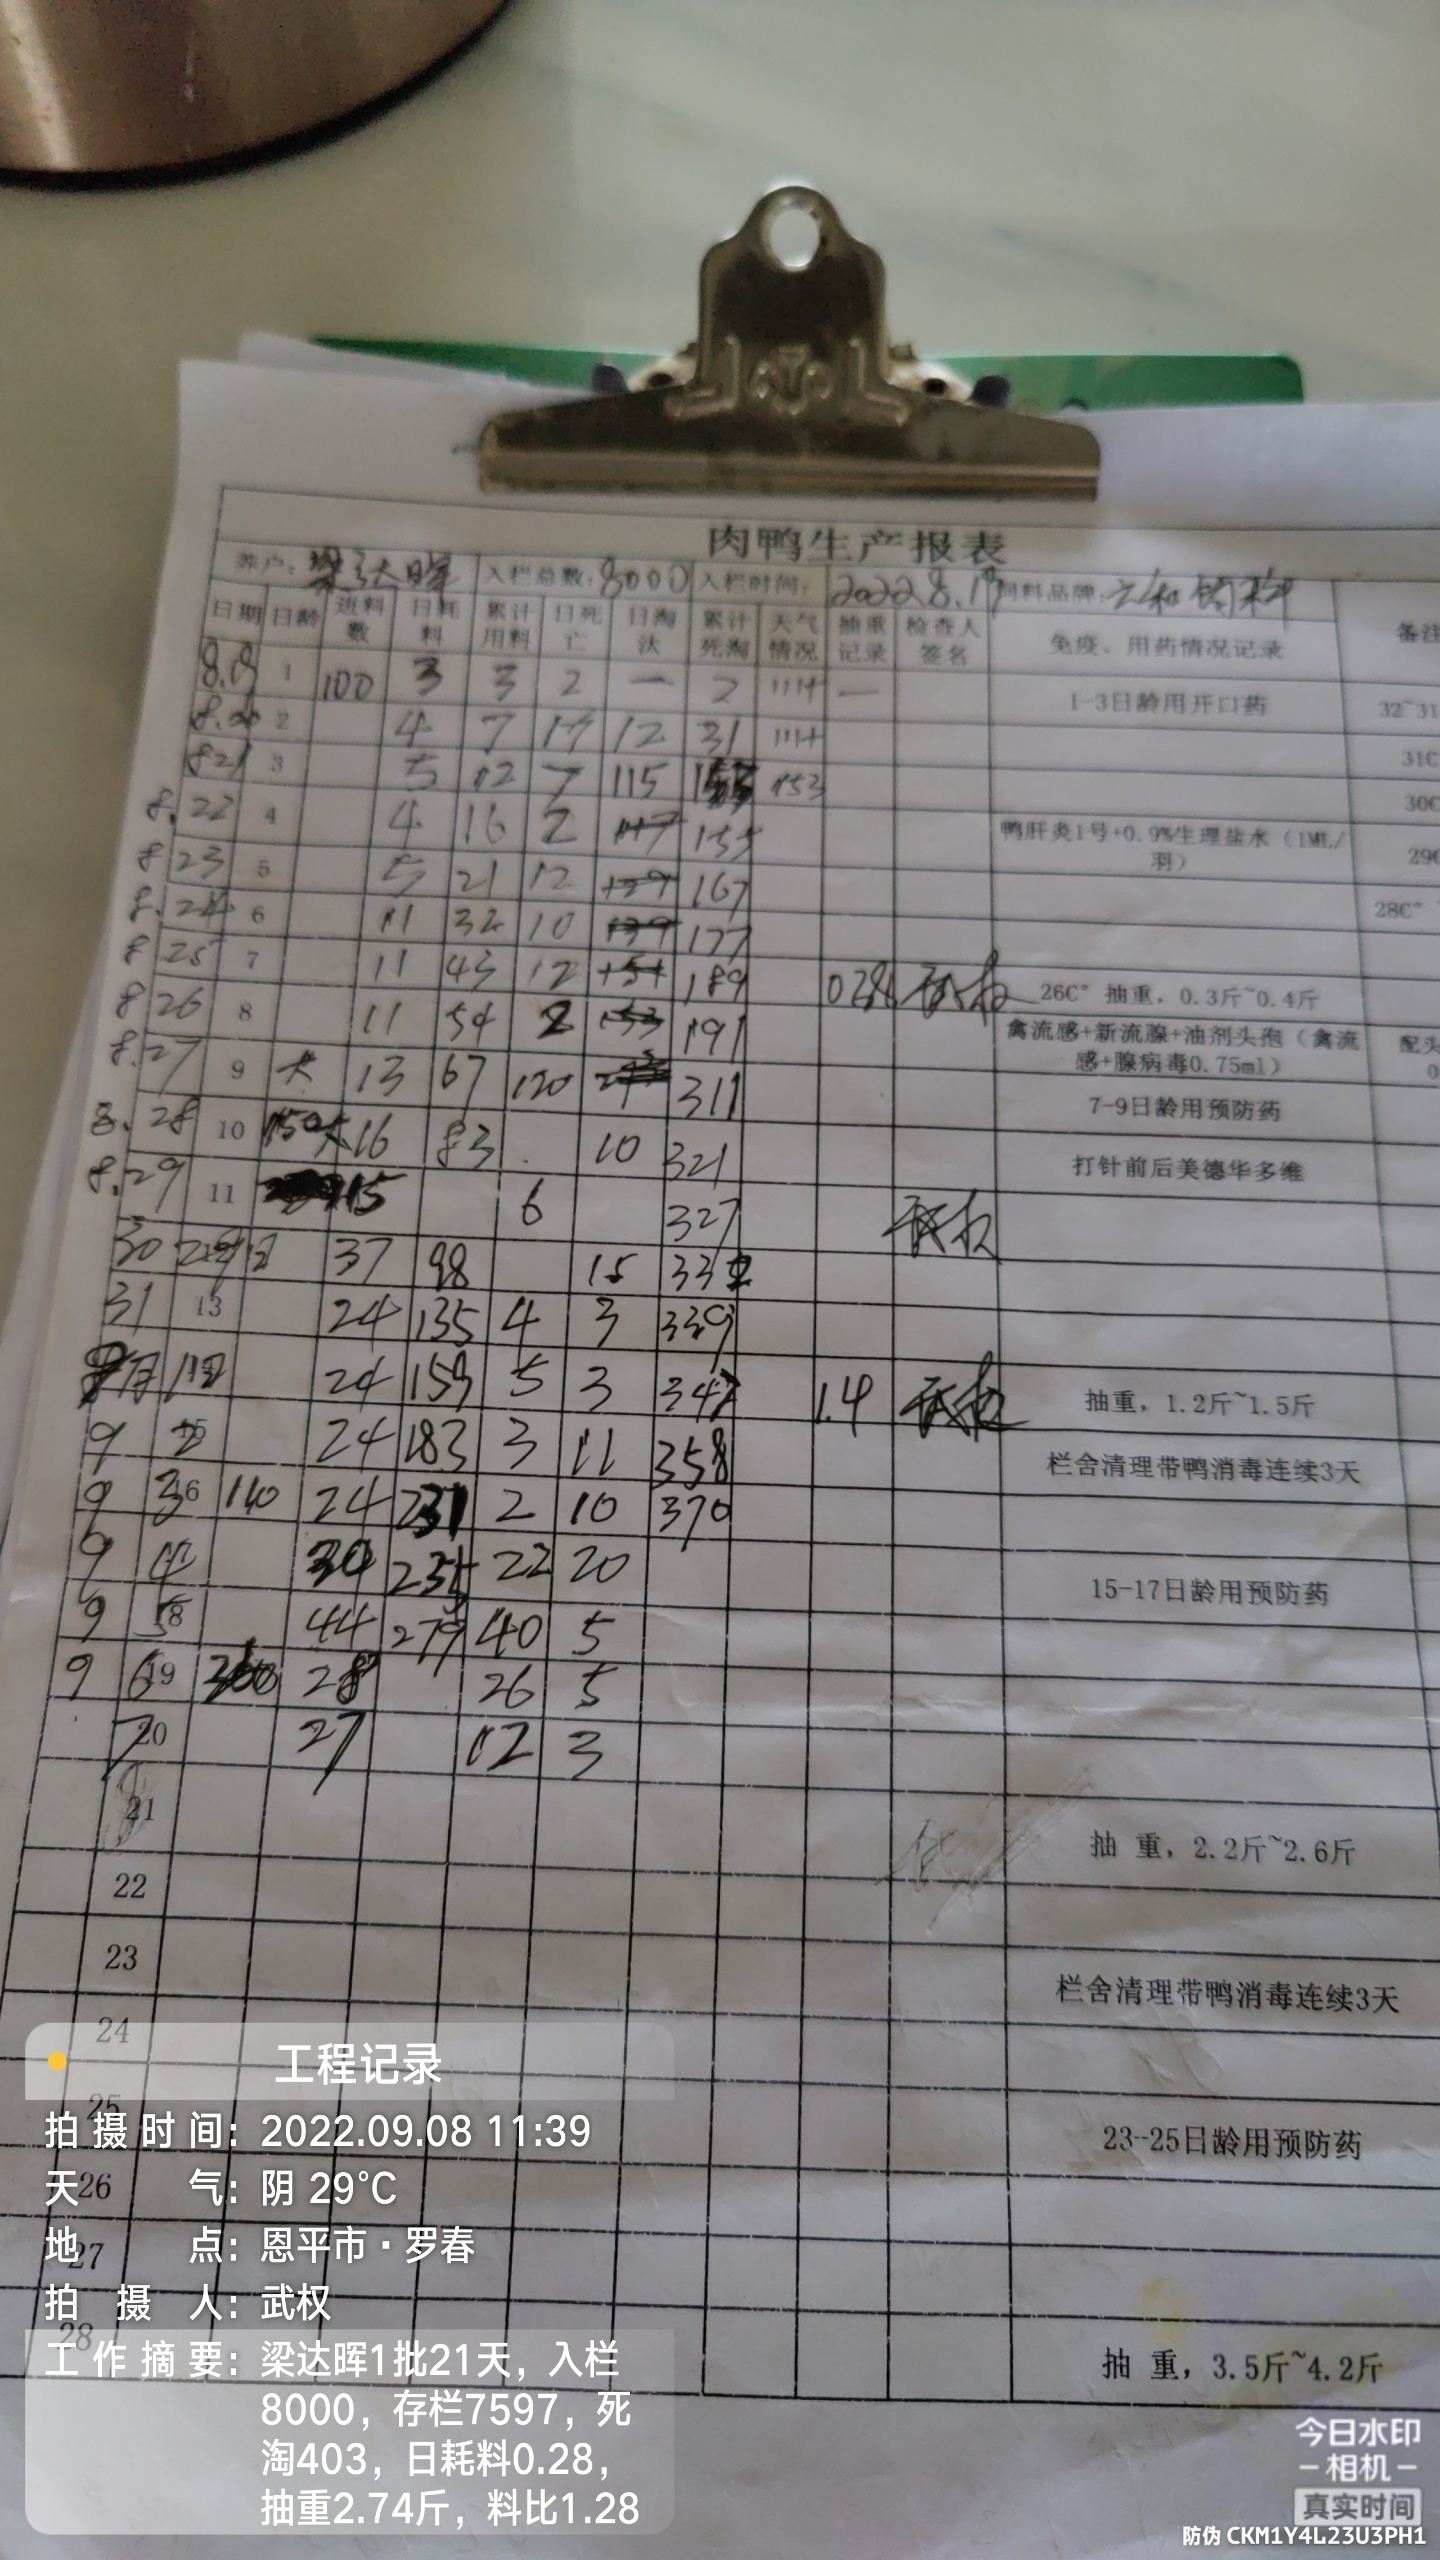 肉鸭生产报表
养户：梁达晖 入栏总数：8000 入栏时间： 2022.8.19 饲料品牌：六和饲料
日期 日龄 进料数 日耗料 累计用料 日死亡 日淘汰 累计死淘 天气情况 抽重记录 检查人签名 免疫、用药情况记录 备注
1 100 3 3 2 一 2 — 1-3日龄用开口药 32~31
2 4 7 17 12 31 31C
8 21 3 5 12 7 115 153 30C
8.22 4 4 16 2 155 鸭肝炎1号+0.9%生理盐水（1ML/羽） 29C
8 23 5 5 21 12 167
8.24 6 11 32 10 177 28C°
8 25 7 11 43 12 189 武权 26C° 抽重，0.3斤~0.4斤
8 26 8 11 54 2 191 禽流感+新流腺+油剂头孢（禽流感+腺病毒0.75ml） 配头
8.27 9 大 13 67 120 311 7-9日龄用预防药
8.28 10 16 83 10 321 打针前后美德华多维
8.29 11 15 6 327 武权
30 37 98 15
31 13 24 135 4 3 339
月1 24 159 5 3 347 1.4 武权 抽重，1.2斤~1.5斤
9 2 24 183 3 11 358 栏舍清理带鸭消毒连续3天
9 3 16 110 24 231 2 10 370
9 4 235 22 20 15-17日龄用预防药
9 5 18 44 279 40 5
9 6 19 28 26 5
7 20 27 12 3
21 抽 重，2.2斤~2.6斤
22
23 栏舍清理带鸭消毒连续3天
24
25 23--25日龄用预防药
26
27
28 抽 重，3.5斤~4.2斤
工程记录
拍摄时间：2022.09.08 11:39
天气：阴 29°C
地点：恩平市·罗春
拍摄人：武权
工作摘要：梁达晖1批21天，入栏
8000，存栏7597，死
淘403，日耗料0.28，
抽重2.74斤，料比1.28
今日水印
-相机-
真实时间
防伪 CKM1Y4L23U3PH1